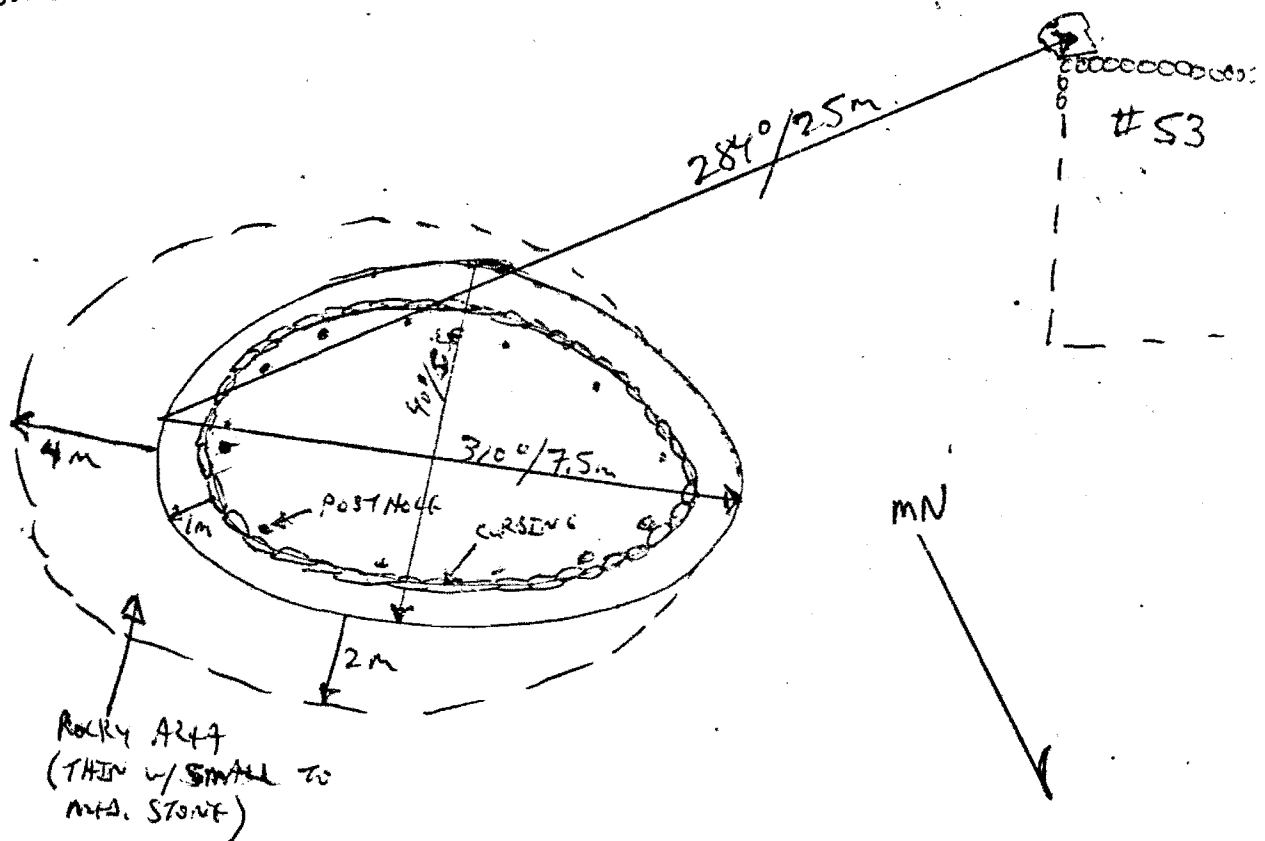 284°/25m
#53
40°/5
310°/7.5m
4m
1m
POSTHOLE
CURBING
mN
2m
ROCKY AREA
(THIN w/ SMALL TO
MED. STONE)